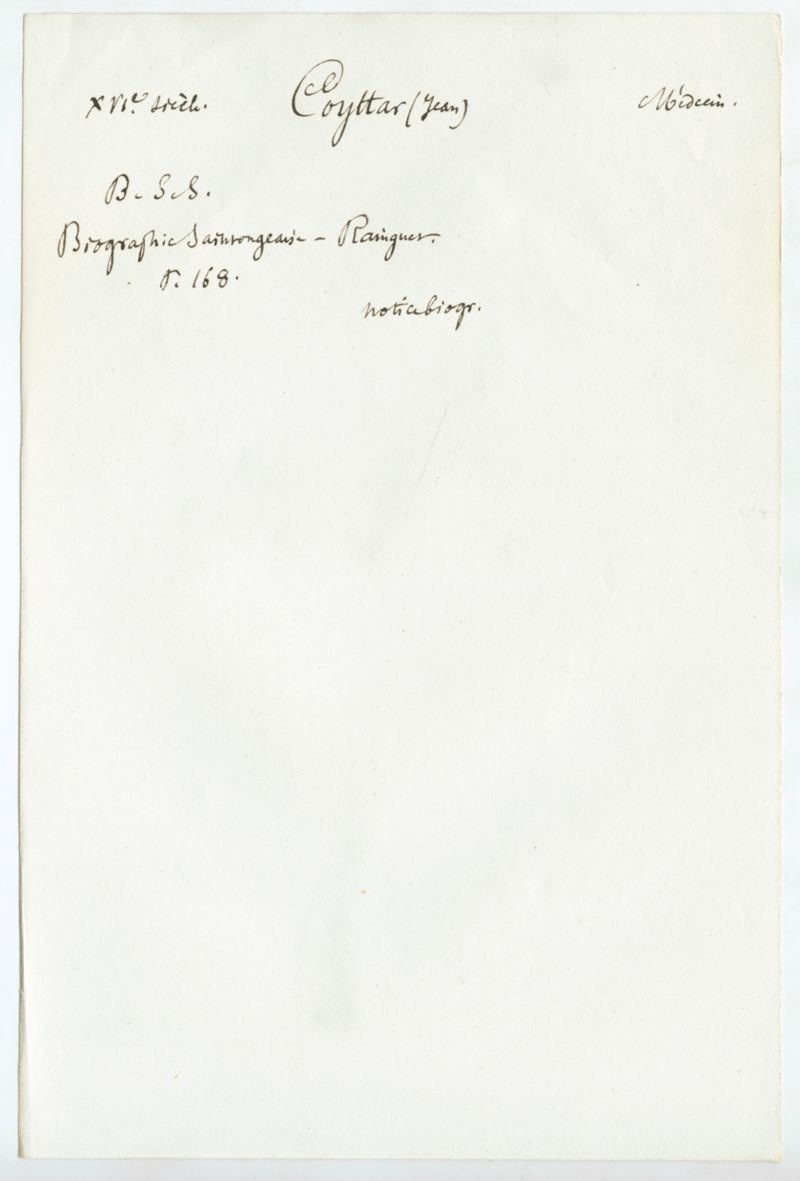 XVIe. siècle. Coyttar (Jean) Médecin.
B. S. S.
Biographie Saintongeaise - Rainguet.
P. 168.
notice biogr.